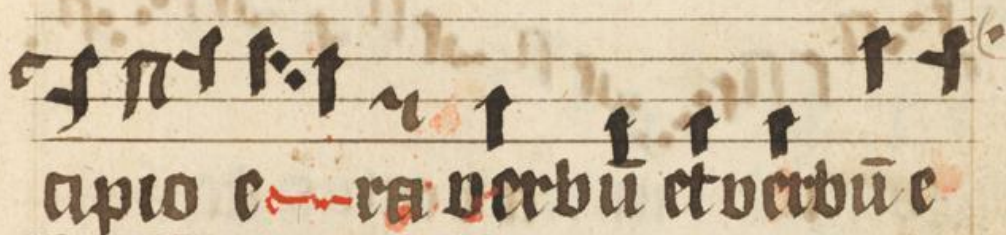 cipio e ra verbū et verbū e